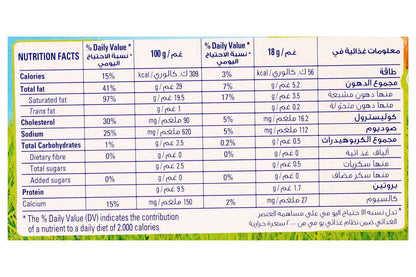 NUTRITION FACTS % Daily Value * * نسبة الاحتياج اليومي 100 g / غم % Daily Value * * نسبة الاحتياج اليومي 18 g / غم معلومات غذائية في
Calories 15% kcal / ك. كالوري 309 3% kcal / ك. كالوري 56 طاقة
Total fat 41% g / غم 29 7% g / غم 5.2 مجموع الدهون
Saturated fat 97% g / غم 19.5 17% g / غم 3.5 منها دهون مشبعة
Trans fat g / غم 1 g / غم 0.2 منها دهون متحولة
Cholesterol 30% mg / ملغم 90 5% mg / ملغم 16.2 كوليسترول
Sodium 25% mg / ملغم 620 5% mg / ملغم 112 صوديوم
Total Carbohydrates 1% g / غم 2.5 0.2% g / غم 0.5 مجموع الكربوهيدرات
Dietary fibre 0% g / غم 0 0% g / غم 0 ألياف غذائية
Total sugars g / غم 2.5 g / غم 0.5 منها سكريات
Added sugars 0% g / غم 0 0% g / غم 0 منها سكر مضاف
Protein g / غم 9.5 g / غم 1.7 بروتين
Calcium 15% mg / ملغم 150 2% mg / ملغم 27 كالسيوم
* The % Daily Value (DV) indicates the contribution
of a nutrient to a daily diet of 2.000 calories
* تدل نسبة الاحتياج اليومي على مساهمة العنصر
الغذائي ضمن نظام غذائي يومي ٢٠٠٠ سعرة حرارية